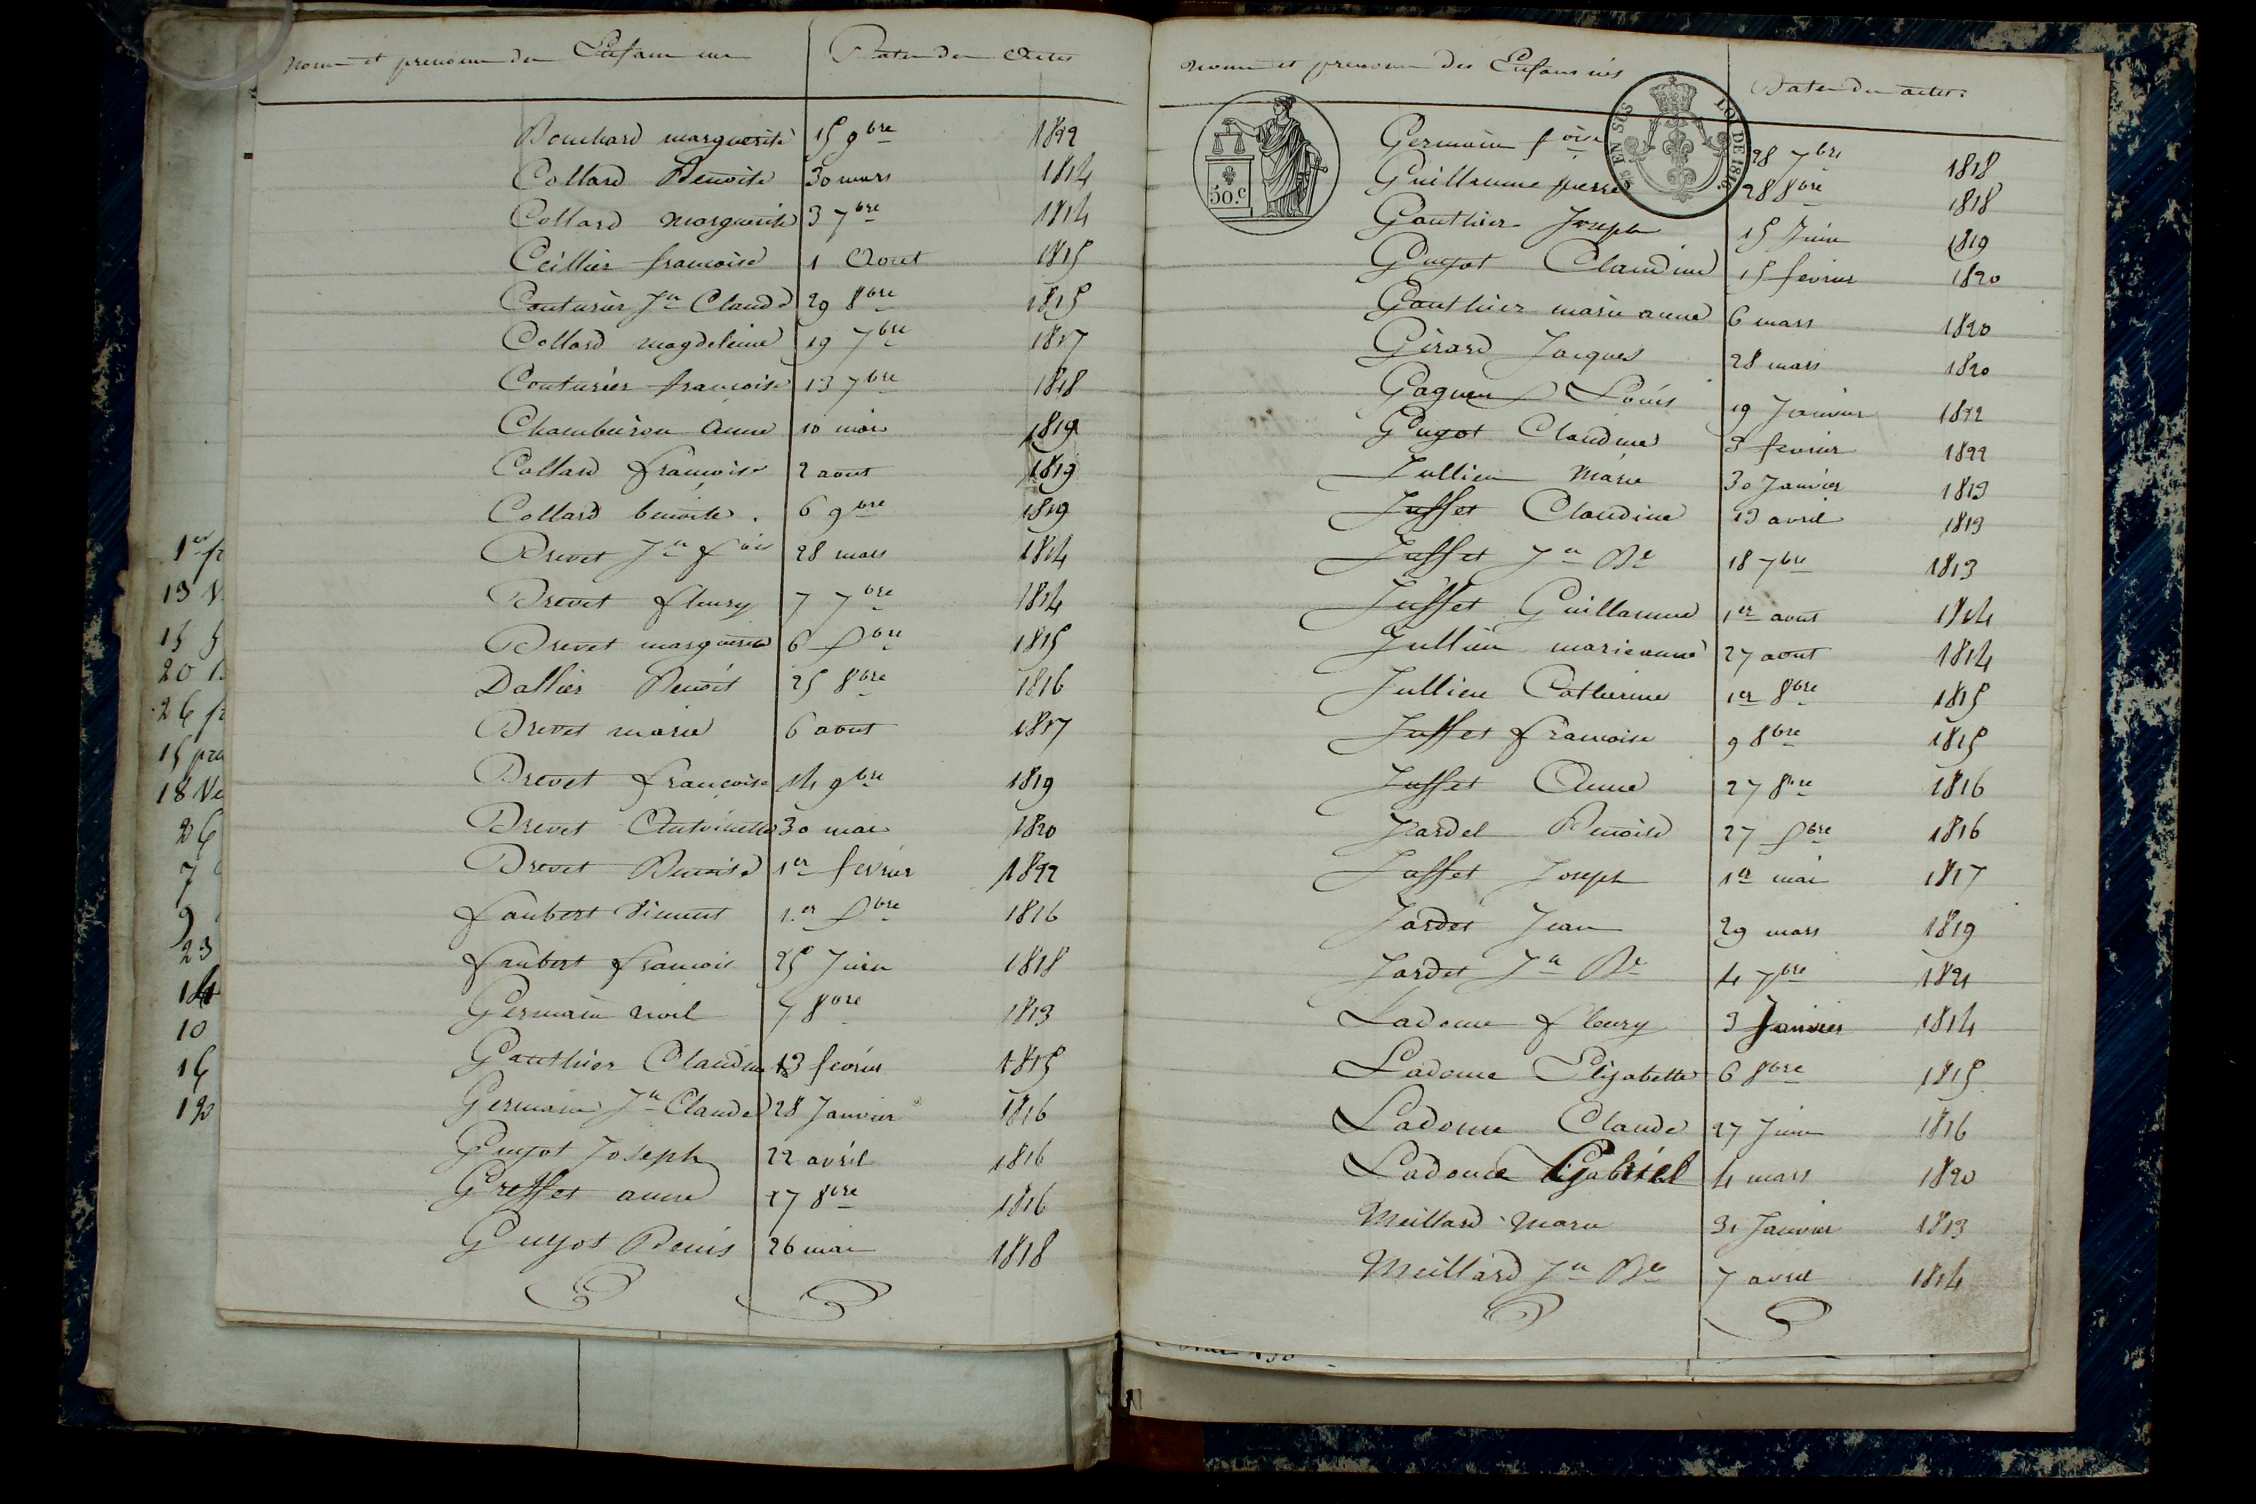 Noms et prenoms des Enfans nés Dates des Actes
Bouchard marguerite 15 9bre 1822
Collard Benoite 30 mars 1814
Collard marguerite 3 7bre 1814
Ceillier francoise 1 Aout 1815
Couturier Jn Claude 29 8bre 1815
Collard magdeleine 19 7bre 1817
Couturier francoise 13 7bre 1818
Chambeiron Anne 10 mai 1819
Collard francoise 2 aout 1819
Collard benoite 6 9bre 1819
Drevet Jn fois 28 mars 1814
Drevet fleury 7 7bre 1814
Drevet marguerite 6 Xbre 1815
Dallier Benoit 25 8bre 1816
Drevet marie 6 aout 1817
Drevet francoise 14 9bre 1819
Drevet Antoinette 30 mai 1820
Drevet Benoise 1er fevrier 1822
faubert 1.er Xbre 1816
faubert francois 25 Juin 1818
Germain noel 7 8bre 1813
Gauthier Claudine 13 fevrier 1815
Germain Jn Claude 28 Janvier 1816
Guyot Joseph 22 avril 1816
Greffet anne 17 8bre 1816
Guyot Denis 26 mai 1818
Noms et prenoms des Enfans nés Dates des actes
50.c
EN SUS LOI DE 1816
Germain foise 28 7bre 1818
Guillaume pierre 28 8bre 1818
Gauthier Joseph 15 Juin 1819
Guyot Claudine 15 fevrier 1820
Gauthier marie anne 6 mars 1820
Girard Jacques 28 mars 1820
Gagneux Louis 19 Janvier 1822
Guyot Claudine 3 fevrier 1822
Jullien Marie 30 Janvier 1813
Juffet Claudine 13 avril 1813
Juffet Jn Bte 18 7bre 1813
Juffet Guillaume 1er aout 1814
Jullien marieanne 27 aout 1814
Jullien Catherine 1er 8bre 1815
Juffet francoise 9 8bre 1815
Juffet Anne 27 8bre 1816
Jardet Benoise 27 Xbre 1816
Juffet Joseph 1er mai 1817
Jardet Jean 29 mars 1819
Jardet Jn Bte 4 7bre 1821
Ladoue fleury 3 Janvier 1814
Ladoue Elizabette 6 8bre 1815
Ladoue Claude 27 Juin 1816
Ladoue Gabriel 4 mars 1820
Meillard Marie 31 Janvier 1813
Meillard Jn Bte 7 avril 1814